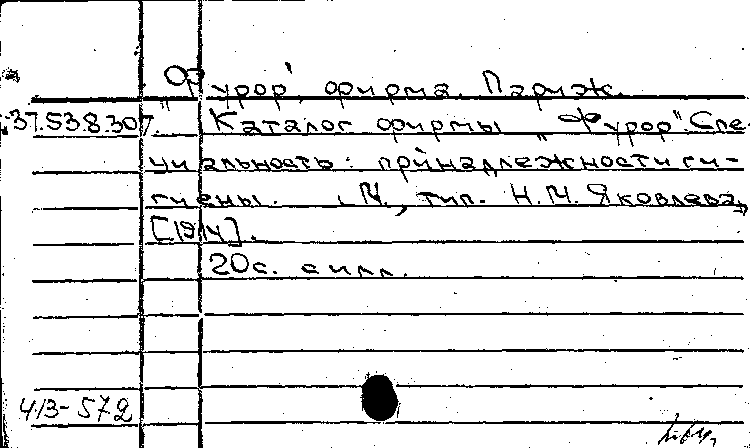 „Фурор", фирма. Париж.
37.53.8.307. Каталог фирмы „Фурор". Спе-
циальность: принадлежности ги-
гиены. М., тип. Н.М. Яковлева,
[1914].
20с. с илл.
413-572